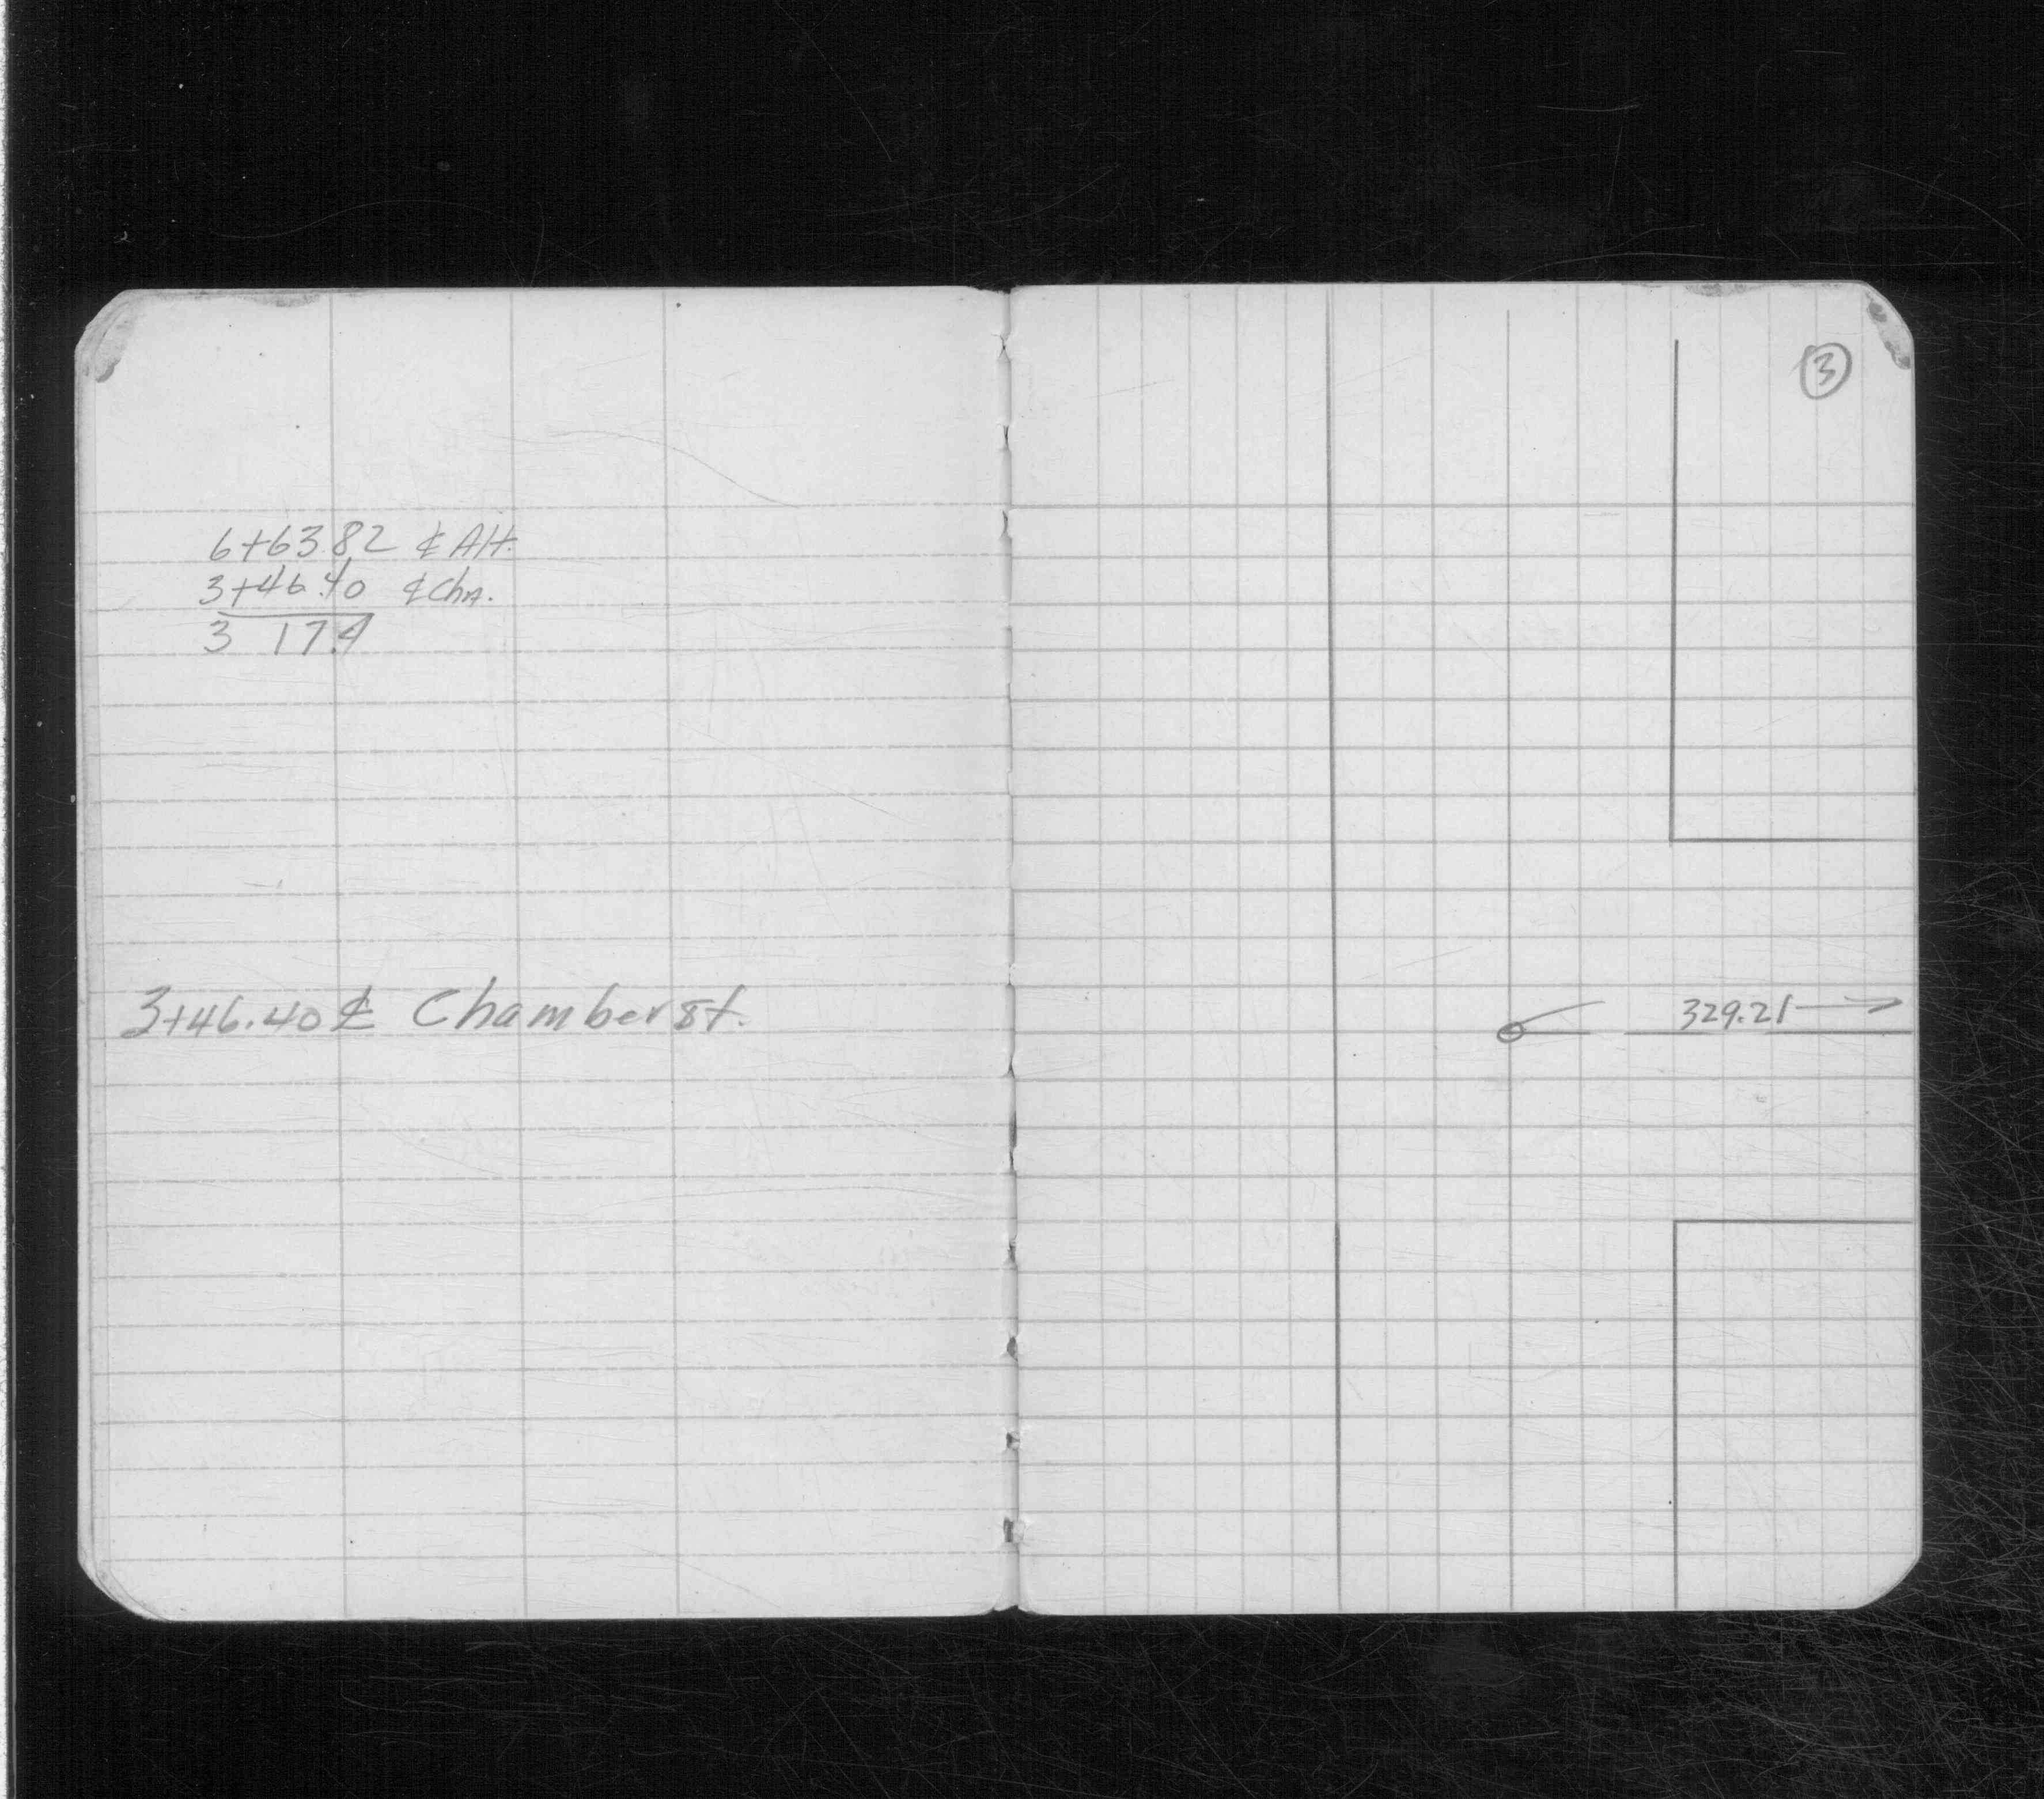 6+63.82 ⅊ Alt.
3+46.40 ⅊ Cha.
3 17.4
3+46.40 ⅊ Chamber st.
3
329.21